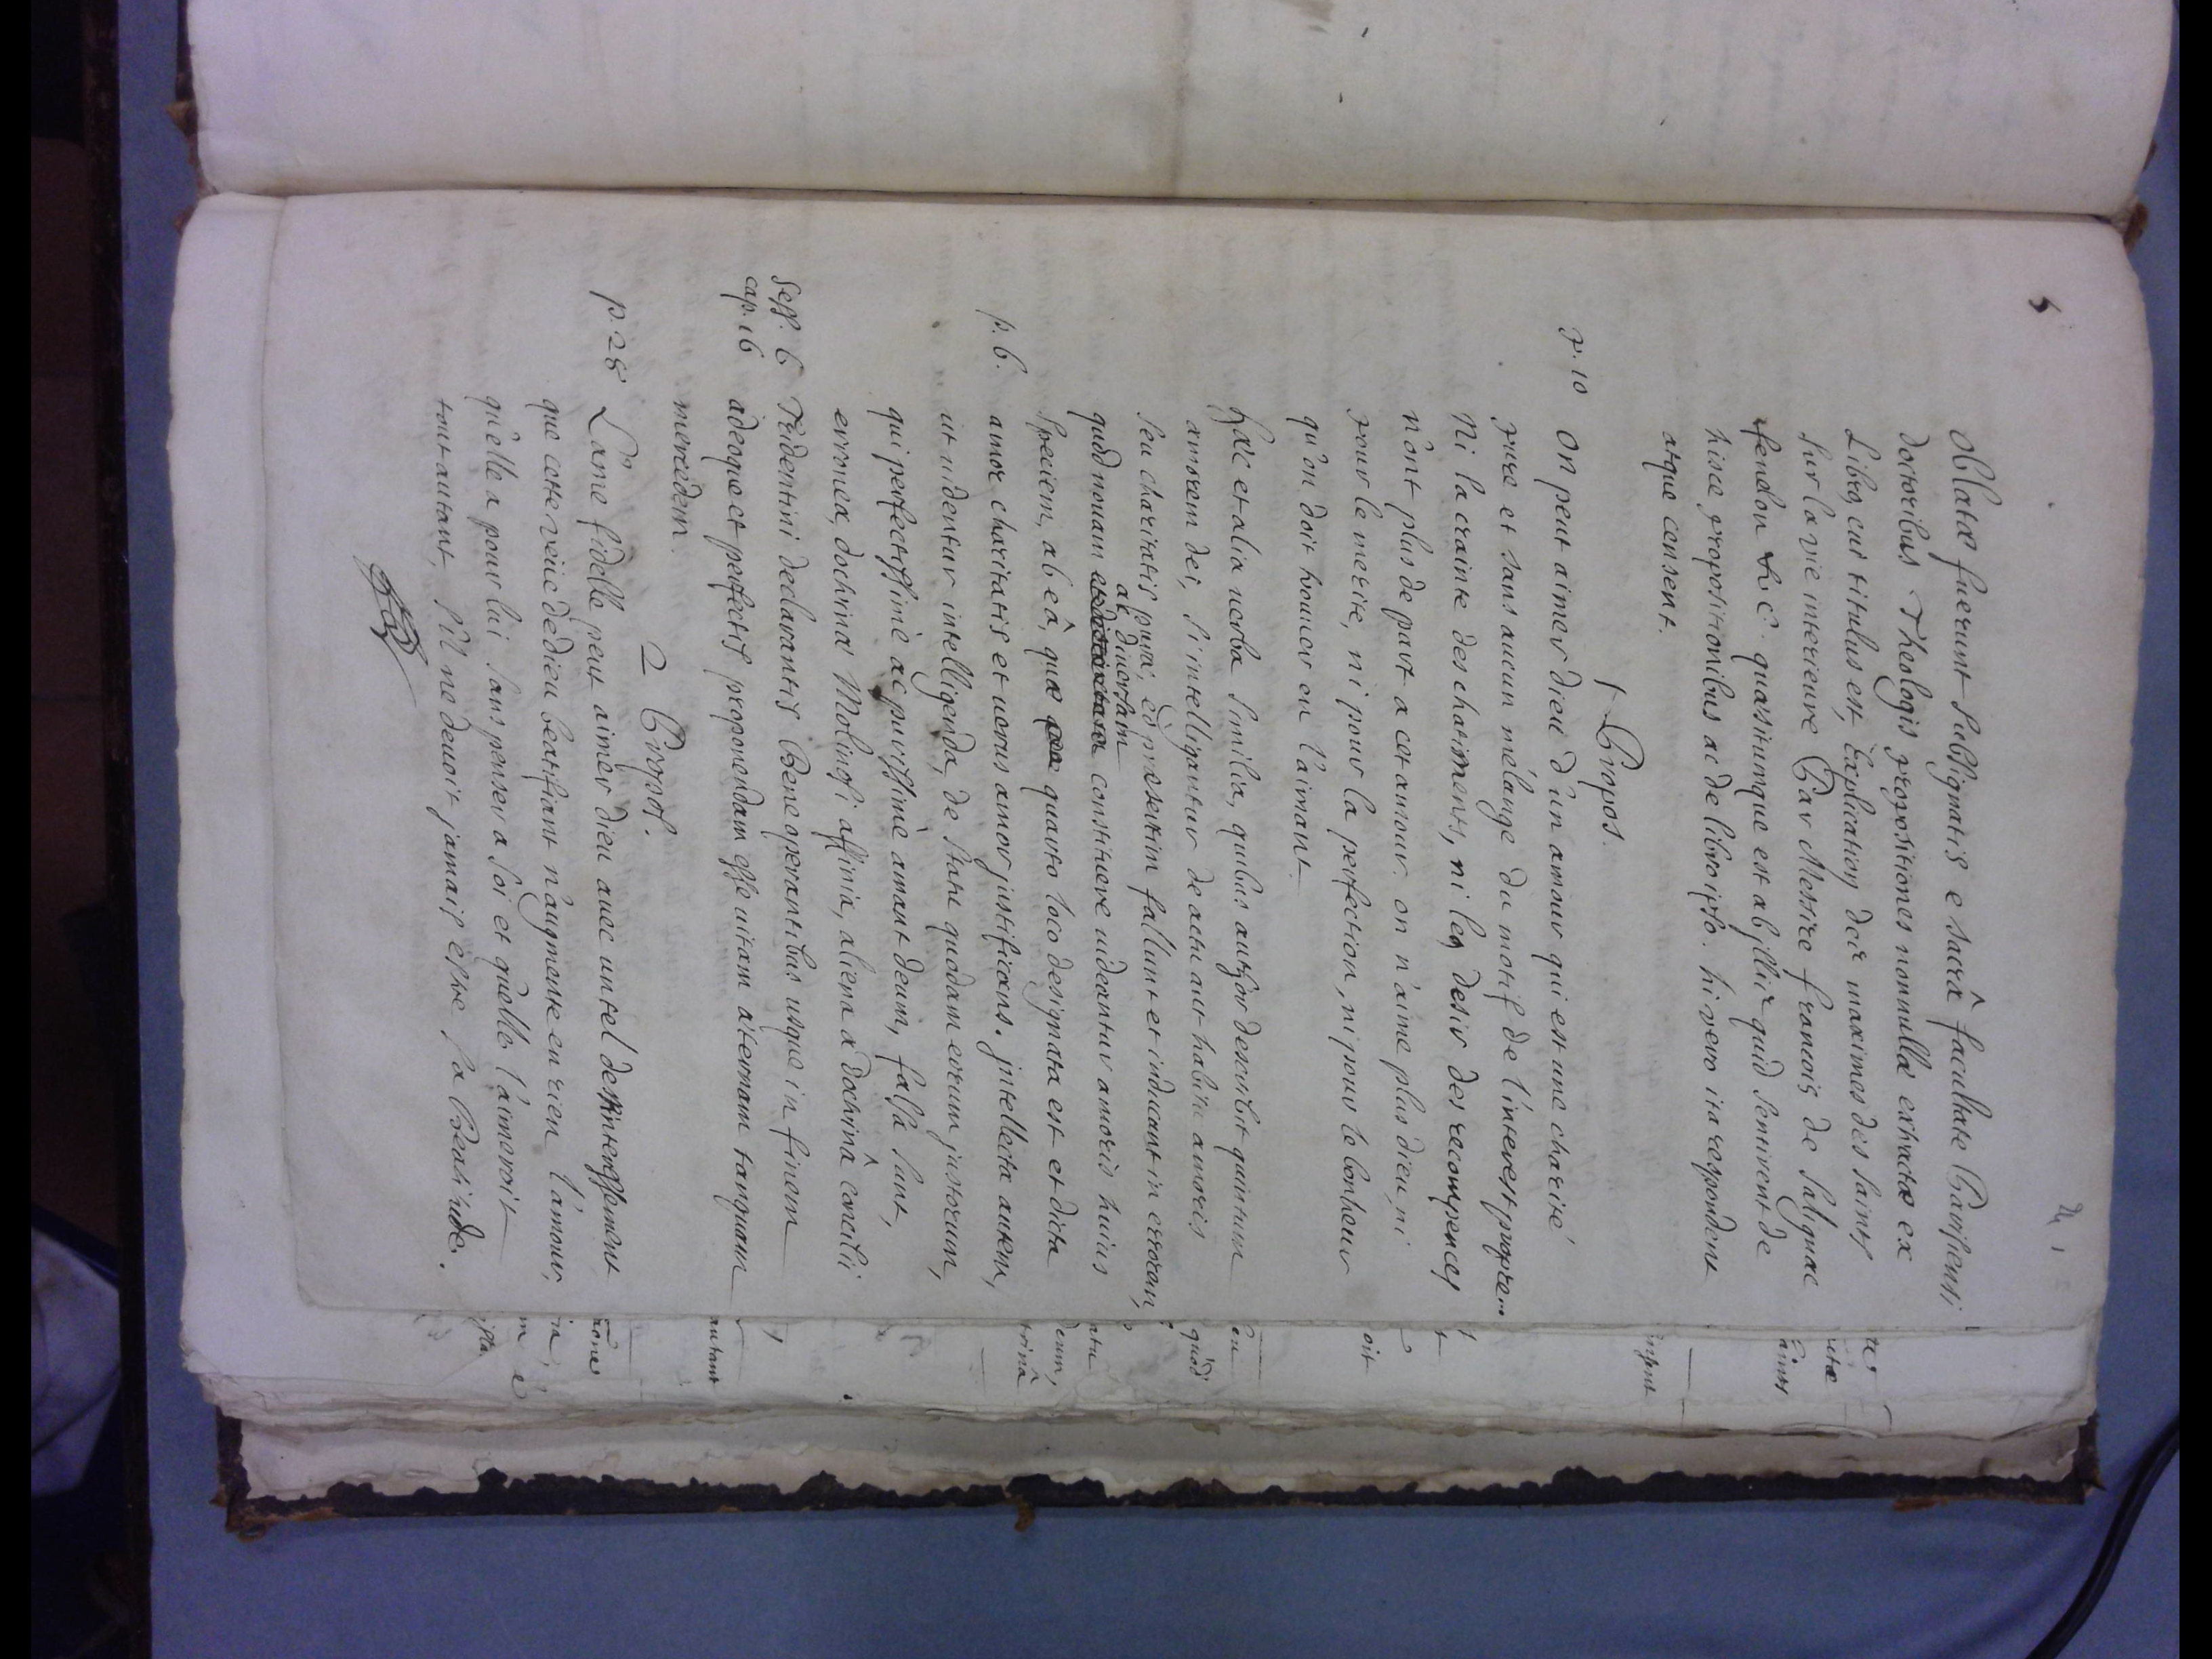 5
Oblatæ fuerunt subsignatis e sacrâ facultate Parisiensi
doctoribus Theologis propositiones nonnullæ extractæ ex
Libro, cui titulus est, Explication des maximes des saints
sur la vie interieure Par Messire francois de Salignac
fenelon &c. quæsitumque est ab illis quid sentirent de
hisce propositionibus ac de libro ipso. hi vero ita respondent
atque censent.
1 Propos.
p. 10 On peut aimer dieu d'un amour qui est une charité
pure et sans aucun mélange du motif de l'interest propre...
Ni la crainte des chatiments, ni les desir des recompences
n'ont plus de part a cet amour. on n'aime plus dieu, ni
pour le merite, ni pour la perfection, ni pour le bonheur
qu'on doit trouver en l'aimant.
hæc et alia verba similia, quibus author describit quintum
amorem dei, si intelligantur de actu aut habitu amoris
seu charitatis puræ, eò præsertim fallunt et inducunt in errorem,
ac diversam
quòd novam constituere videantur amoris huius
speciem, ab eâ, quæ quarto loco designata est et dicta
p. 6. amor charitatis et verus amor justificans. intellecta autem,
ut videntur intelligenda, de statu quodam eorum justorum,
qui perfectissimè ac purissimè amant deum, falsa sunt,
erronea, doctrinæ Molinosi affinia, aliena a doctrinâ concilii
sess. 6 Tridentini declarantis Bene operantibus usque in finem
cap. 16 adeoque et perfectis proponendam esse vitam æternam tanquam
mercedem.
2 Propos.
p. 28 L'ame fidelle peut aimer dieu avec un tel desinteressement
que cette veüe de dieu beatifiant n'augmente en rien l'amour,
qu'elle a pour lui sans penser a soi et qu'elle l'aimeroit
tout autant, s'il ne devoit jamais estre sa beatitude.